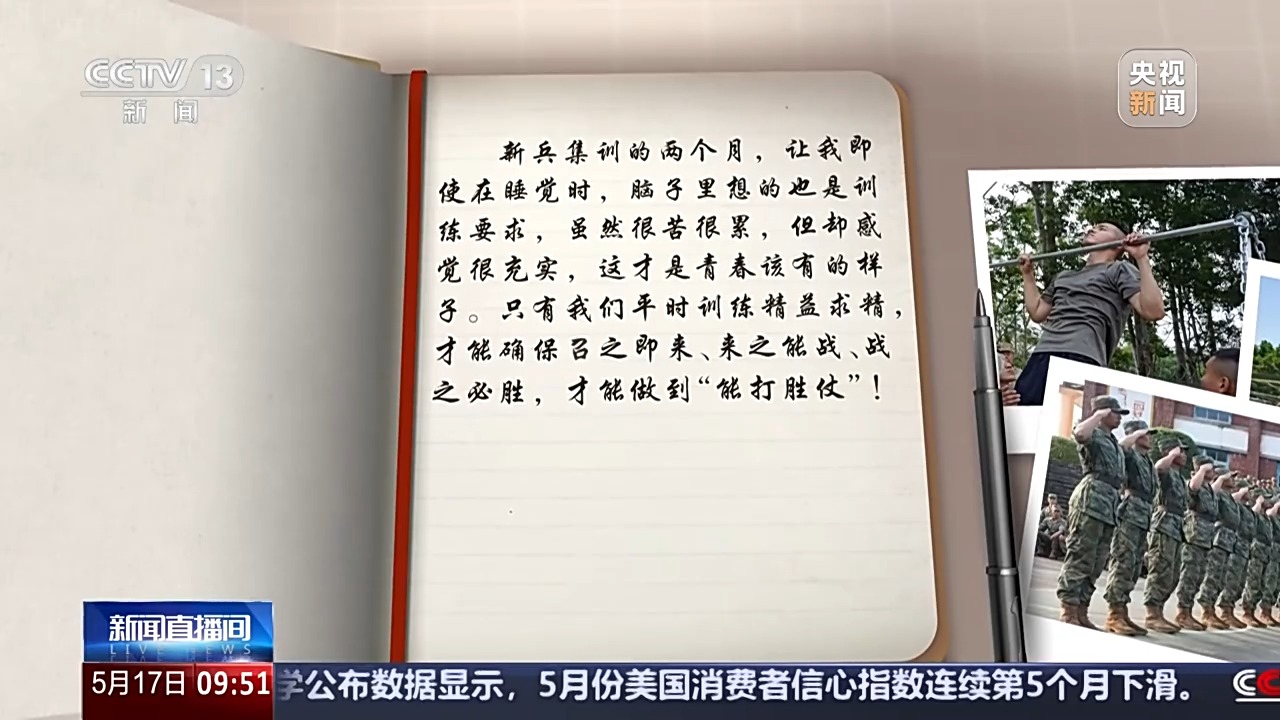 CCTV 13
新闻
央视
新闻
新兵集训的两个月，让我即
使在睡觉时，脑子里想的也是训
练要求，虽然很苦很累，但却感
觉很充实，这才是青春该有的样
子。只有我们平时训练精益求精，
才能确保召之即来、来之能战、战
之必胜，才能做到“能打胜仗”！
新闻直播间
LIVE NEWS
5月17日 09:51
学公布数据显示，5月份美国消费者信心指数连续第5个月下滑。